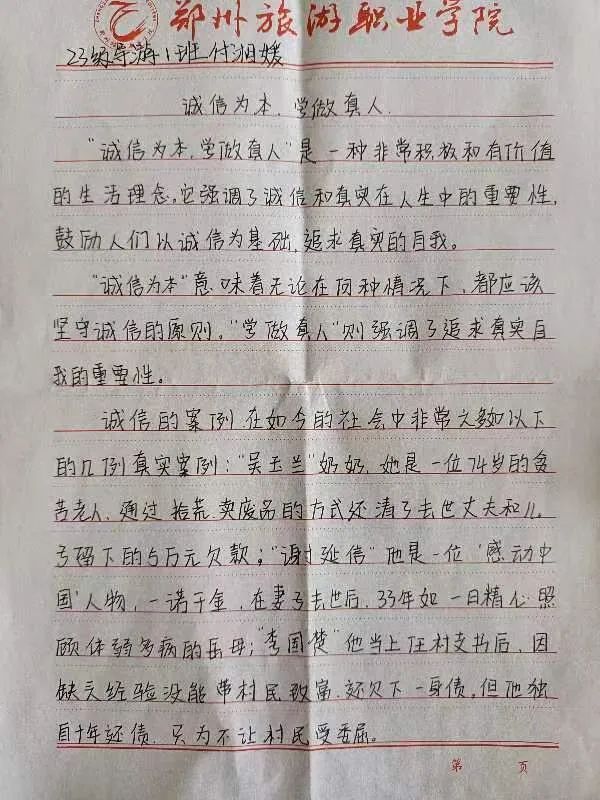 郑州旅游职业学院
23级导游1班付湘媛
诚信为本,学做真人.
"诚信为本,学做真人"是一种非常积极和有价值
的生活理念,它强调了诚信和真实在人生中的重要性,
鼓励人们以诚信为基础,追求真实的自我。
"诚信为本"意味着无论在何种情况下,都应该
坚守诚信的原则,"学做真人"则强调了追求真实自
我的重要性。
诚信的案例在如今的社会中非常之多如以下
的几例真实案例:"吴玉兰"奶奶,她是一位74岁的贫
苦老人,通过拾荒,卖废品的方式还清了去世丈夫和儿
子留下的5万元欠款;"谢延信"他是一位"感动中
国"人物,一诺千金,在妻子去世后,33年如一日精心照
顾体弱多病的岳母;"李国楚"他当上任村支书后,因
缺乏经验没能带村民致富,还欠下一身债,但他独
自十年还债,只为不让村民受委屈。
第 页